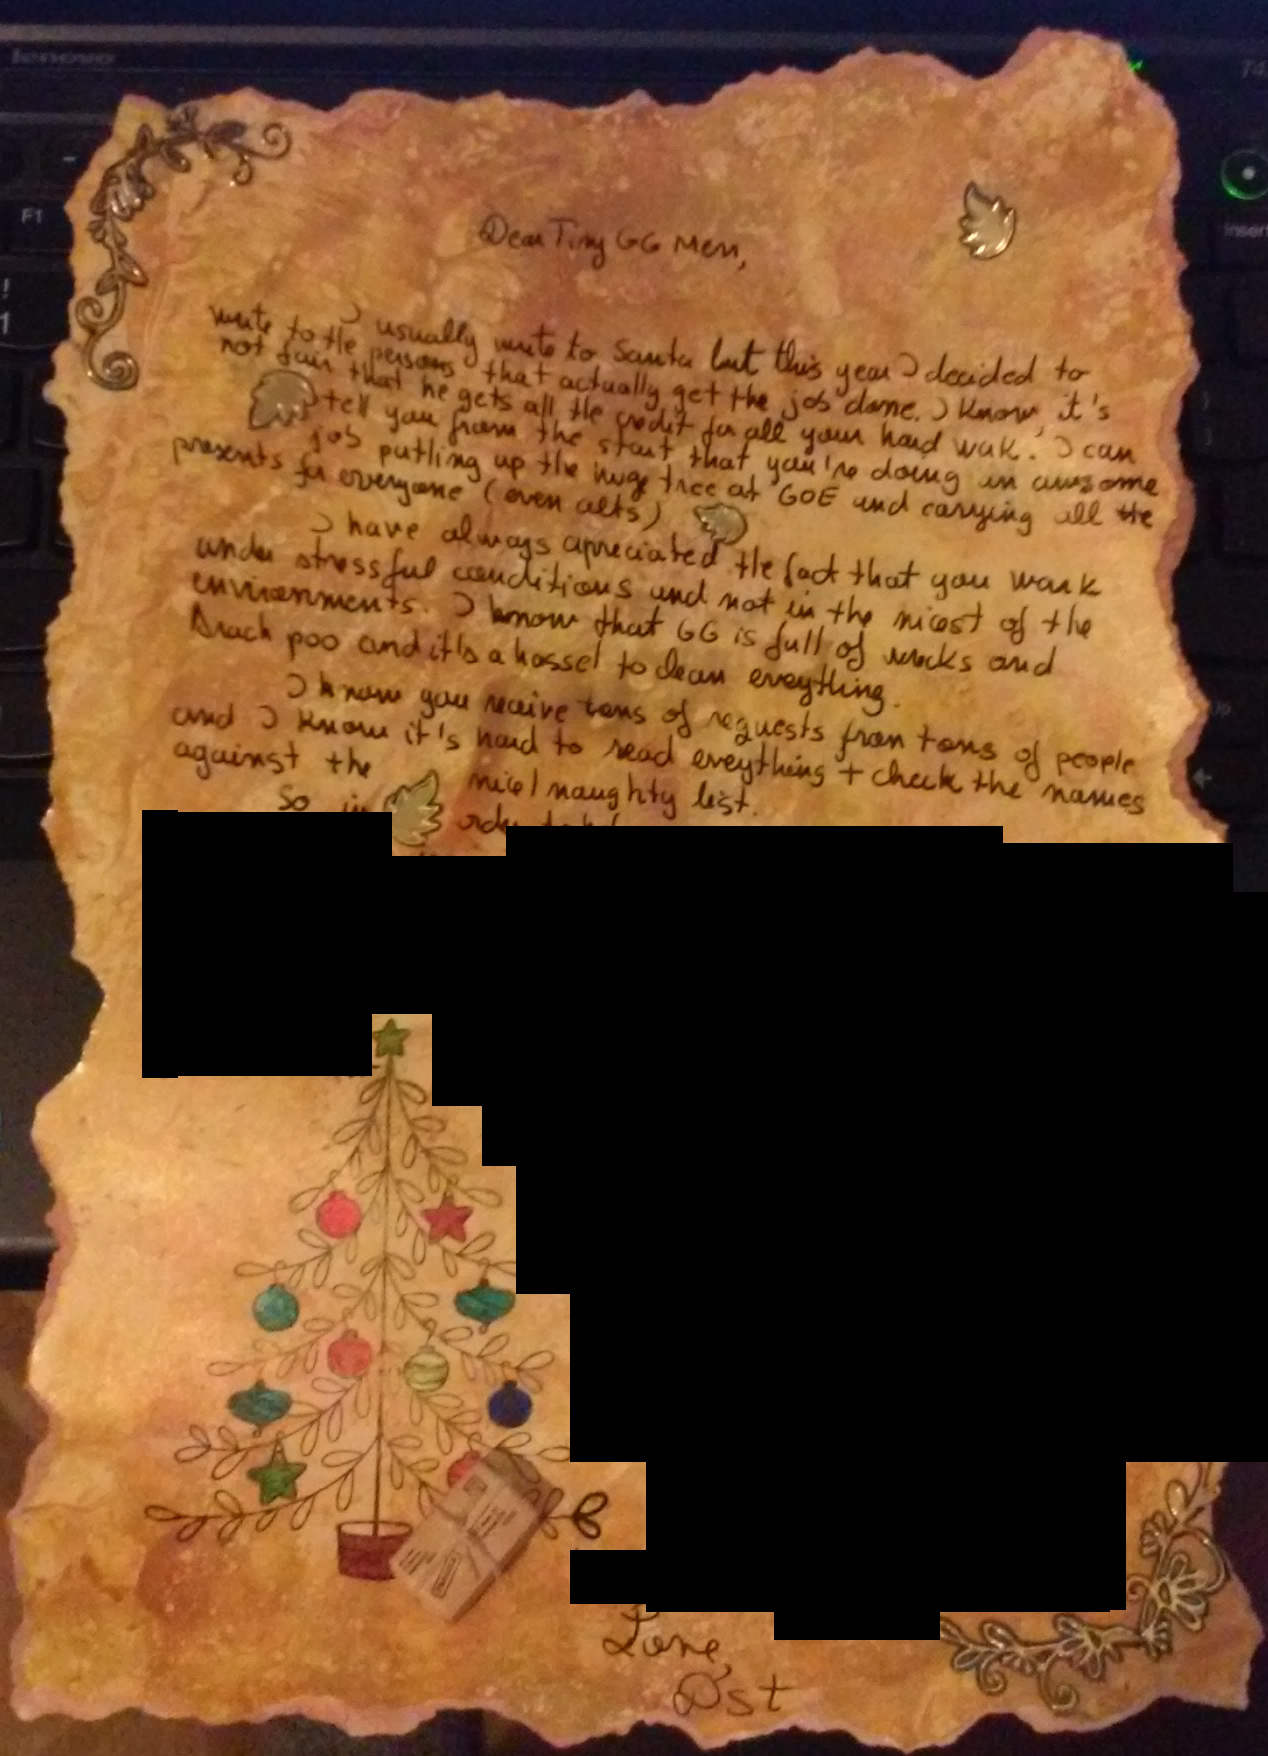 lenovo
F1
!
1
Insert
Dear Tiny GG Men,
I usually write to Santa but this year I decided to
write to the persons that actually get the job done. I know, it's
not fair that he gets all the credit for all your hard work. I can
tell you from the start that you're doing an awsome
job putting up the huge tree at GOE and carrying all the
presents for everyone (even alts)
I have always apreciated the fact that you work
under stressful conditions and not in the nicest of the
envirenments. I know that GG is full of and
Drach poo and it's a hassel to clean eveything.
I know you receive tons of requests from tons of people
and I know it's hard to read eveything + check the names
against the nice/naughty list.
So in order
Love,
D'st